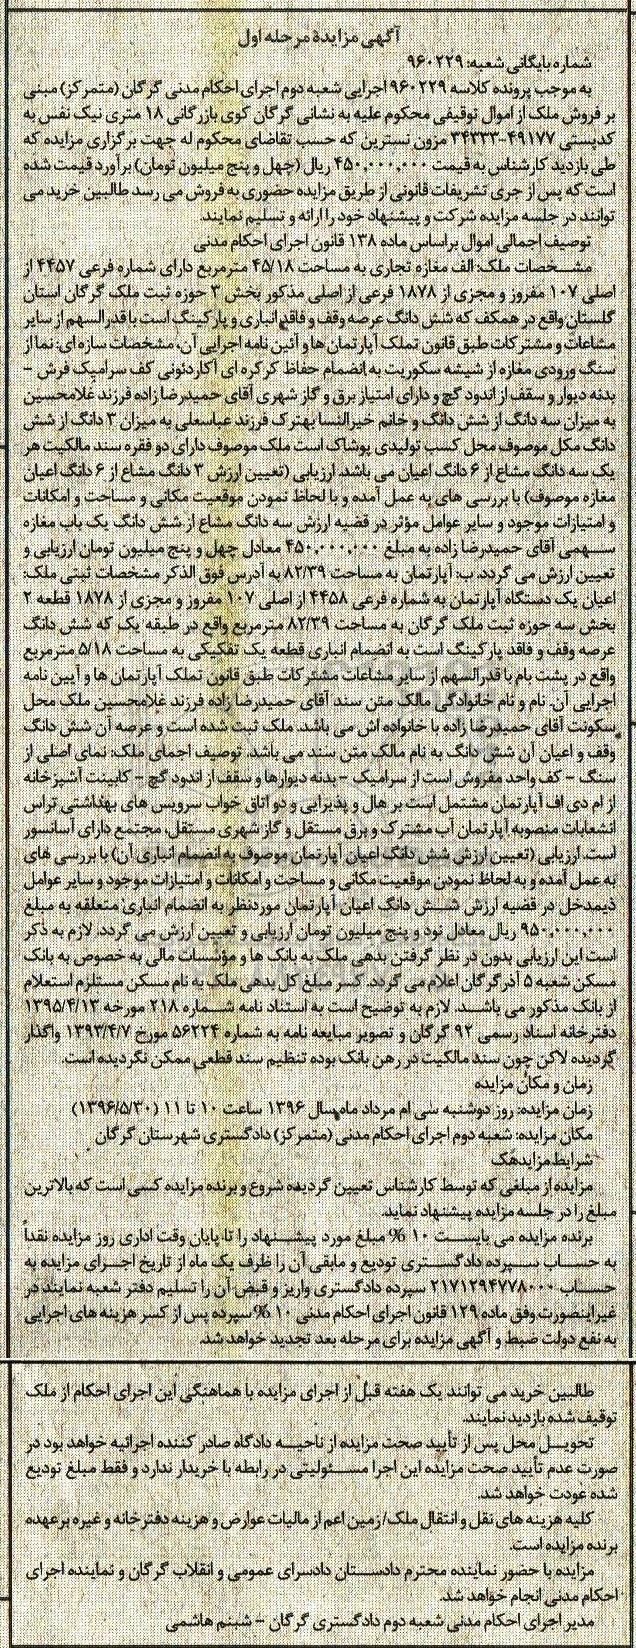 آگهی مزایدهٔ مرحله اول
شماره بایگانی شعبه: ۹۶۰۲۲۹
به موجب پرونده کلاسه ۹۶۰۲۲۹ اجرایی شعبه دوم اجرای احکام مدنی گرگان (متمرکز) مبنی
بر فروش ملک از اموال توقیفی محکوم علیه به نشانی گرگان کوی بازرگانی ۱۸ متری نیک نفس به
کدپستی ۴۹۱۷۷-۳۴۳۳۳ مزون نسترین که حسب تقاضای محکوم له جهت برگزاری مزایده که
طی بازدید کارشناس به قیمت ۴۵۰,۰۰۰,۰۰۰ ریال (چهل و پنج میلیون تومان) برآورد قیمت شده
است که پس از جری تشریفات قانونی از طریق مزایده حضوری به فروش می رسد طالبین خرید می
توانند در جلسه مزایده شرکت و پیشنهاد خود را ارائه و تسلیم نمایند.
توصیف اجمالی اموال براساس ماده ۱۳۸ قانون اجرای احکام مدنی
مشخصات ملک: الف مغازه تجاری به مساحت ۴۵/۱۸ مترمربع دارای شماره فرعی ۴۴۵۷ از
اصلی ۱۰۷ مفروز و مجزی از ۱۸۷۸ فرعی از اصلی مذکور بخش ۳ حوزه ثبت ملک گرگان استان
گلستان واقع در همکف که شش دانگ عرصه وقف و فاقد انباری و پارکینگ است با قدرالسهم از سایر
مشاعات و مشترکات طبق قانون تملک آپارتمان ها و آئین نامه اجرایی آن، مشخصات سازه ای: نما از
سنگ ورودی مغازه از شیشه سکوریت به انضمام حفاظ کرکره ای آکاردئونی کف سرامیک فرش –
بدنه دیوار و سقف از اندود گچ و دارای امتیاز برق و گاز شهری آقای حمیدرضا زاده فرزند غلامحسین
به میزان سه دانگ از شش دانگ و خانم خیرالنسا بهترک فرزند عباسعلی به میزان ۳ دانگ از شش
دانگ مکل موصوف محل کسب تولیدی پوشاک است ملک موصوف دارای دو فقره سند مالکیت هر
یک سه دانگ مشاع از ۶ دانگ اعیان می باشد. ارزیابی (تعیین ارزش ۳ دانگ مشاع از ۶ دانگ اعیان
مغازه موصوف) با بررسی های به عمل آمده و با لحاظ نمودن موقعیت مکانی و مساحت و امکانات
و امتیازات موجود و سایر عوامل مؤثر در قضیه ارزش سه دانگ مشاع از شش دانگ یک باب مغازه
سهمی آقای حمیدرضا زاده به مبلغ ۴۵۰,۰۰۰,۰۰۰ معادل چهل و پنج میلیون تومان ارزیابی و
تعیین ارزش می گردد. ب: آپارتمان به مساحت ۸۲/۳۹ به آدرس فوق الذکر مشخصات ثبتی ملک:
اعیان یک دستگاه آپارتمان به شماره فرعی ۴۴۵۸ از اصلی ۱۰۷ مفروز و مجزی از ۱۸۷۸ قطعه ۲
بخش سه حوزه ثبت ملک گرگان به مساحت ۸۲/۳۹ مترمربع واقع در طبقه یک که شش دانگ
عرصه وقف و فاقد پارکینگ است به انضمام انباری قطعه یک تفکیکی به مساحت ۵/۱۸ مترمربع
واقع در پشت بام با قدرالسهم از سایر مشاعات مشترکات طبق قانون تملک آپارتمان ها و آیین نامه
اجرایی آن. نام و نام خانوادگی مالک متن سند آقای حمیدرضا زاده فرزند غلامحسین ملک محل
سکونت آقای حمیدرضا زاده با خانواده اش می باشد. ملک ثبت شده است و عرصه آن شش دانگ
وقف و اعیان آن شش دانگ به نام مالک متن سند می باشد. توصیف اجمای ملک: نمای اصلی از
سنگ – کف واحد مفروش است از سرامیک – بدنه دیوارها و سقف از اندود گچ – کابینت آشپزخانه
از ام دی اف آپارتمان مشتمل است بر هال و پذیرایی و دو اتاق خواب سرویس های بهداشتی تراس
انشعابات منصوبه آپارتمان آب مشترک و برق مستقل و گاز شهری مستقل، مجتمع دارای آسانسور
است. ارزیابی (تعیین ارزش شش دانگ اعیان آپارتمان موصوف به انضمام انباری آن) با بررسی های
به عمل آمده و به لحاظ نمودن موقعیت مکانی و مساحت و امکانات و امتیازات موجود و سایر عوامل
ذیمدخل در قضیه ارزش شش دانگ اعیان آپارتمان موردنظر به انضمام انباری متعلقه به مبلغ
۹۵۰,۰۰۰,۰۰۰ ریال معادل نود و پنج میلیون تومان ارزیابی و تعیین ارزش می گردد. لازم به ذکر
است این ارزیابی بدون در نظر گرفتن بدهی ملک به بانک ها و مؤسسات مالی به خصوص به بانک
مسکن شعبه ۵ آذر گرگان اعلام می گردد. کسر مبلغ کل بدهی ملک به نام مسکن مستلزم استعلام
از بانک مذکور می باشد. لازم به توضیح است به استناد نامه شماره ۲۱۸ مورخه ۱۳۹۵/۴/۱۳
دفترخانه اسناد رسمی ۹۲ گرگان و تصویر مبایعه نامه به شماره ۵۶۲۲۴ مورخ ۱۳۹۳/۴/۷ واگذار
گردیده لاکن چون سند مالکیت در رهن بانک بوده تنظیم سند قطعی ممکن نگردیده است.
زمان و مکان مزایده
زمان مزایده: روز دوشنبه سی ام مرداد ماه سال ۱۳۹۶ ساعت ۱۰ تا ۱۱ (۱۳۹۶/۵/۳۰)
مکان مزایده: شعبه دوم اجرای احکام مدنی (متمرکز) دادگستری شهرستان گرگان
شرایط مزایدهک
مزایده از مبلغی که توسط کارشناس تعیین گردیده شروع و برنده مزایده کسی است که بالاترین
مبلغ را در جلسه مزایده پیشنهاد نماید.
برنده مزایده می بایست ۱۰ % مبلغ مورد پیشنهاد را تا پایان وقت اداری روز مزایده نقداً
به حساب سپرده دادگستری تودیع و مابقی آن را ظرف یک ماه از تاریخ اجرای مزایده به
حساب ۲۱۷۱۲۹۴۷۷۸۰۰۰ سپرده دادگستری واریز و قبض آن را تسلیم دفتر شعبه نمایند در
غیراینصورت وفق ماده ۱۲۹ قانون اجرای احکام مدنی ۱۰ % سپرده پس از کسر هزینه های اجرایی
به نفع دولت ضبط و آگهی مزایده برای مرحله بعد تجدید خواهد شد.
طالبین خرید می توانند یک هفته قبل از اجرای مزایده با هماهنگی این اجرای احکام از ملک
توقیف شده بازدید نمایند.
تحویل محل پس از تأیید صحت مزایده از ناحیه دادگاه صادر کننده اجرائیه خواهد بود در
صورت عدم تأیید صحت مزایده این اجرا مسئولیتی در رابطه با خریدار ندارد و فقط مبلغ تودیع
شده عودت خواهد شد.
کلیه هزینه های نقل و انتقال ملک/ زمین اعم از مالیات عوارض و هزینه دفترخانه و غیره برعهده
برنده مزایده است.
مزایده با حضور نماینده محترم دادستان دادسرای عمومی و انقلاب گرگان و نماینده اجرای
احکام مدنی انجام خواهد شد.
مدیر اجرای احکام مدنی شعبه دوم دادگستری گرگان – شبنم هاشمی